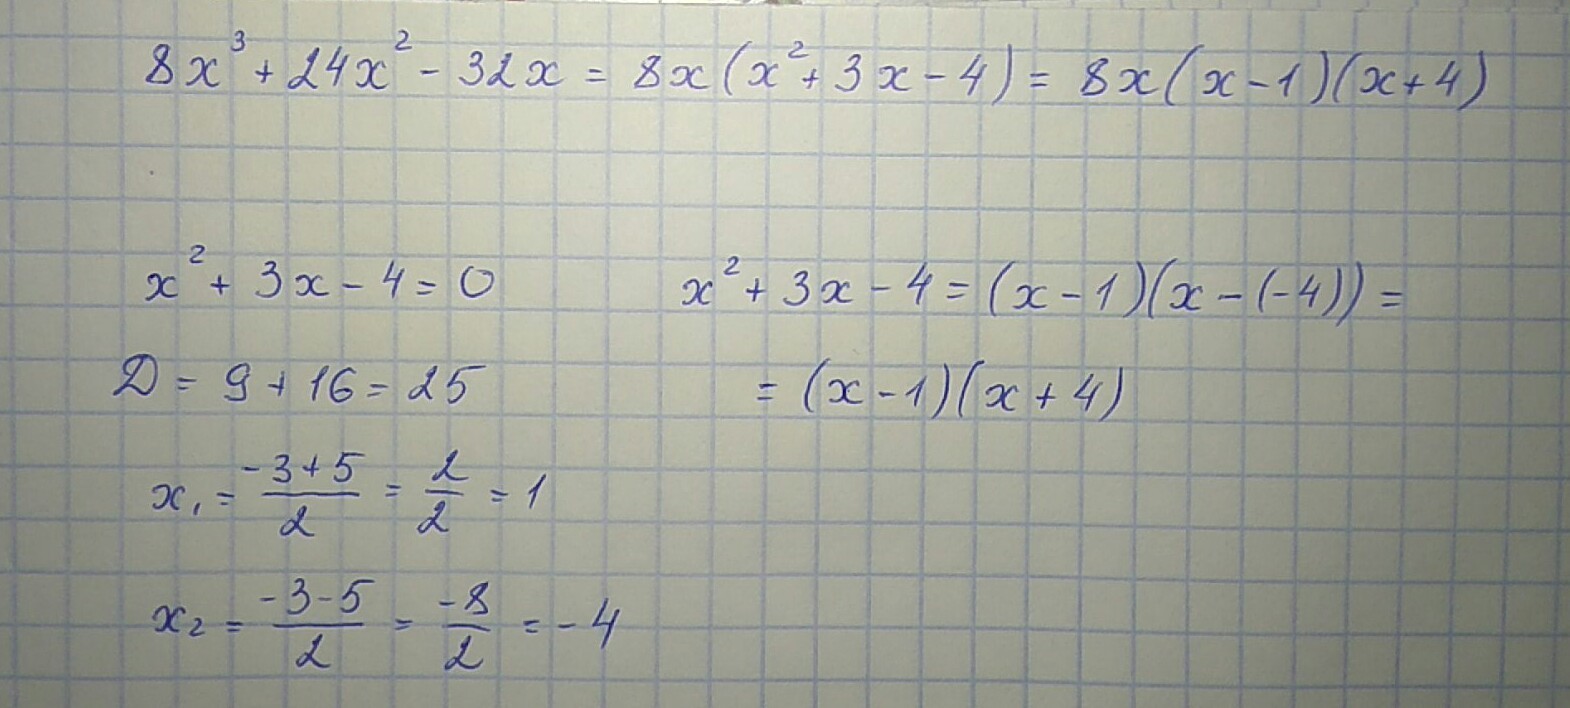 8x³ + 24x² - 32x = 8x(x² + 3x - 4) = 8x(x - 1)(x + 4)
x² + 3x - 4 = 0
D = 9 + 16 = 25
x₁ = \frac{-3+5}{2} = \frac{2}{2} = 1
x₂ = \frac{-3-5}{2} = \frac{-8}{2} = -4
x² + 3x - 4 = (x - 1)(x - (-4)) =
= (x - 1)(x + 4)